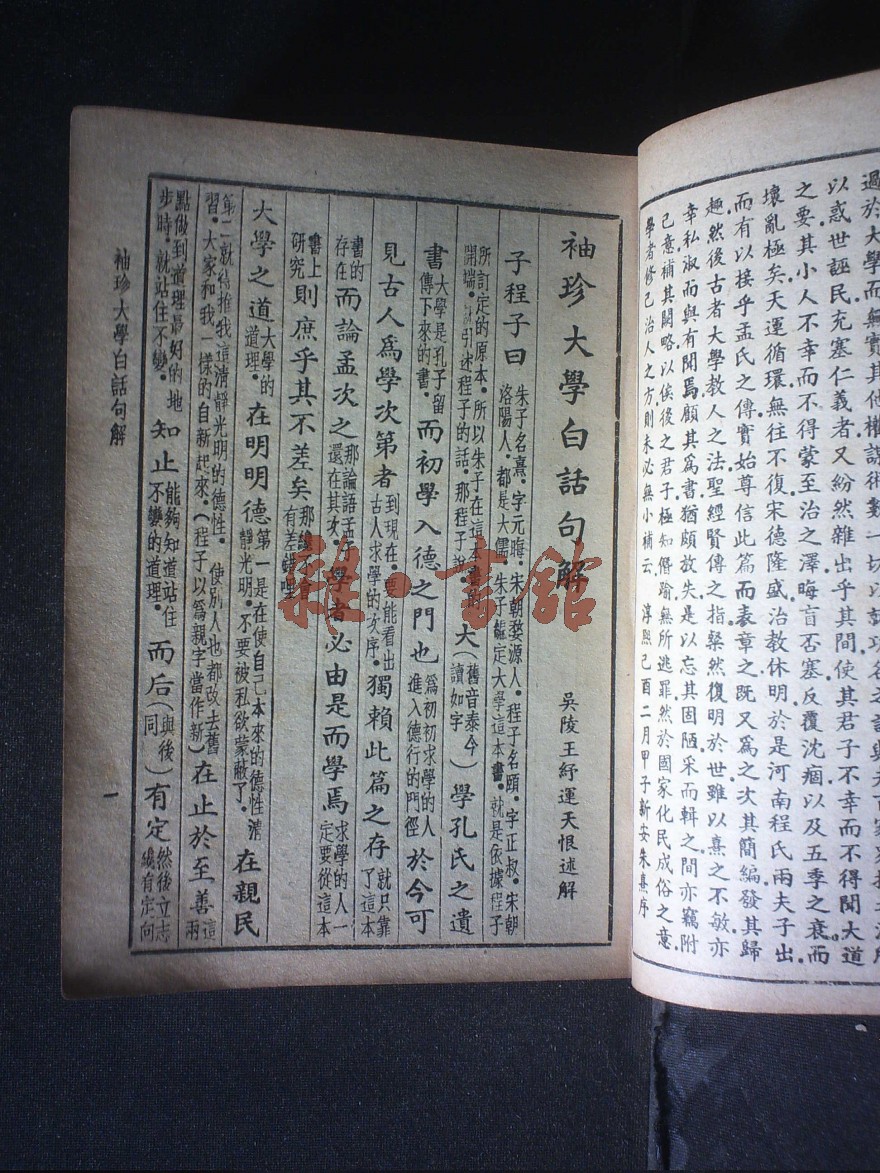 過於大學而無實其他權謀術數一切以就功名
以惑世誣民充塞仁義者又紛然雜出乎其間使其君子不幸而不得聞大道
之要其小人不幸而不得蒙至治之澤晦盲否塞反覆沈痼以及五季之衰而
壞亂極矣天運循環無往不復宋德隆盛治教休明於是河南程氏兩夫子出
而有以接乎孟氏之傳實始尊信此篇而表章之既又爲之次其簡編發其歸
趣然後古者大學教人之法聖經賢傳之指粲然復明於世雖以熹之不敏亦
幸私淑而與有聞焉顧其爲書猶頗放失是以忘其固陋采而輯之間亦竊附
己意補其闕略以俟後之君子極知僭踰無所逃罪然於國家化民成俗之意
學者修己治人之方則未必無小補云 淳熙己酉二月甲子新安朱熹序
袖珍大學白話句解 吳陵王紓運天恨述解
子程子曰 朱子名熹．字元晦．宋朝婺源人．程子名頤．字正叔．宋朝洛陽人．都是大儒．朱子龝定大學這本書．就是依據程子
所訂定的原本．所以朱子在這本書的開端．就引述程子的話．那程子說． 大（舊音泰今讀如字）學孔氏之遺
書 大學是孔子留傳下來的書． 而初學入德之門也 爲初初求學的人進入德行的門徑 於今可
見古人爲學次第者 到現在．要能看出古人求學的次序． 獨賴此篇之存 就只靠了這本
書的存在 而論孟次之 那論語孟子還在其次． 學者必由是而學焉 求學的人一定要從這本
書上研究 則庶乎其不差矣 那纔不會有差錯哩
大學之道 大學的道理． 在明明德 第一是在使自己本來的德性清靜光明．不要被私欲蒙蔽了． 在親民
第二就得推我這清靜光明的德性．使別人也都改去舊習．大家和我一樣的自新起來．（程子以爲親字當作新） 在止於至善 這兩
點做到道理最好的地步時．就站住不變． 知止 能夠知道站住不變的道理． 而后（與後同）有定 然後立志纔有定向
袖珍大學白話句解
一
雜·書館